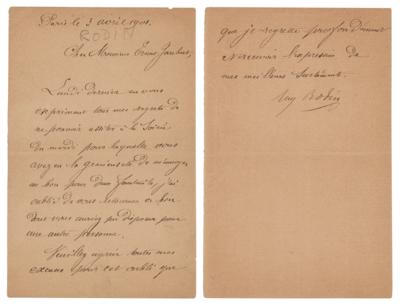 Paris le 3 avril 1901.
RODIN
Cher Monsieur Ernest Gaubert,
Lundi dernier en vous
exprimant tous mes regrets de
ne pouvoir assister à la Soirée
du mardi pour laquelle vous
avez eu la gracieuseté de m'envoyer
un bon pour deux fauteuils, j'ai
oublié de vous retourner ce bon
dont vous auriez pu disposer pour
une autre personne.
Veuillez agréer toutes mes
excuses pour cet oubli que
que je regrette profondément
et recevoir l'expression de
mes meilleurs sentiments.
Aug Rodin